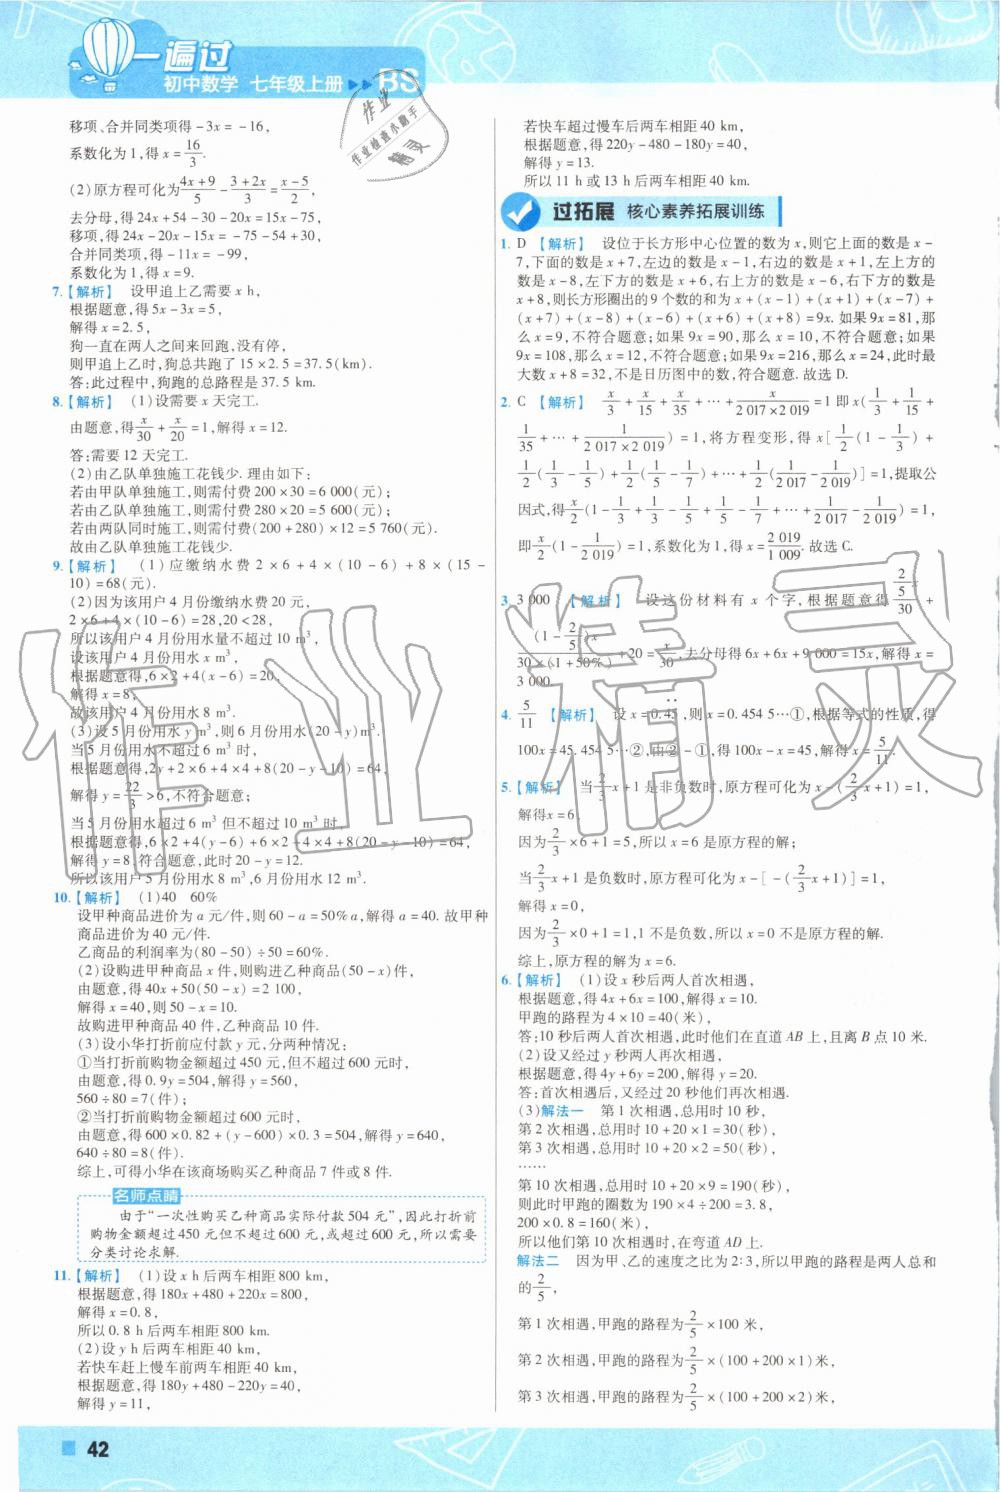 一遍过
初中数学 七年级上册 ▶▶ BS
移项、合并同类项得-3x=-16,
系数化为1,得x=16/3.
(2)原方程可化为(4x+9)/5-(3+2x)/3=(x-5)/2,
去分母,得24x+54-30-20x=15x-75,
移项,得24x-20x-15x=-75-54+30,
合并同类项,得-11x=-99,
系数化为1,得x=9.
7.【解析】 设甲追上乙需要x h,
根据题意,得5x-3x=5,
解得x=2.5,
狗一直在两人之间来回跑,没有停,
则甲追上乙时,狗总共跑了15×2.5=37.5(km).
答:此过程中,狗跑的总路程是37.5 km.
8.【解析】 (1)设需要x天完工.
由题意,得x/30+x/20=1,解得x=12.
答:需要12天完工.
(2)由乙队单独施工花钱少. 理由如下:
若由甲队单独施工,则需付费200×30=6 000(元);
若由乙队单独施工,则需付费280×20=5 600(元);
若由两队同时施工,则需付费(200+280)×12=5 760(元).
故由乙队单独施工花钱少.
9.【解析】 (1)应缴纳水费2×6+4×(10-6)+8×(15-
10)=68(元).
(2)因为该用户4月份缴纳水费20元,
2×6+4×(10-6)=28,20<28,
所以该用户4月份用水量不超过10 m³.
设该用户4月份用水x m³,
根据题意,得6×2+4(x-6)=20,
解得x=8,
故该用户4月份用水8 m³.
(3)设5月份用水y m³,则6月份用水(20-y)m³.
当5月份用水不超过6 m³时,
根据题意,得2y+2×6+4×4+8(20-y-10)=64,
解得y=22/3>6,不符合题意;
当5月份用水超过6 m³但不超过10 m³时,
根据题意,得6×2+4(y-6)+6×2+4×4+8(20-y-10)=64,
解得y=8,符合题意,此时20-y=12.
所以该用户5月份用水8 m³,6月份用水12 m³.
10.【解析】 (1)40 60%
设甲种商品进价为a元/件,则60-a=50%a,解得a=40. 故甲种
商品进价为40元/件.
乙商品的利润率为(80-50)÷50=60%.
(2)设购进甲种商品x件,则购进乙种商品(50-x)件,
由题意,得40x+50(50-x)=2 100,
解得x=40,则50-x=10.
故购进甲种商品40件,乙种商品10件.
(3)设小华打折前应付款y元,分两种情况:
①当打折前购物金额超过450元,但不超过600元时,
由题意,得0.9y=504,解得y=560,
560÷80=7(件);
②当打折前购物金额超过600元时,
由题意,得600×0.82+(y-600)×0.3=504,解得y=640,
640÷80=8(件).
综上,可得小华在该商场购买乙种商品7件或8件.
名师点睛
由于“一次性购买乙种商品实际付款504元”,因此打折前
购物金额超过450元但不超过600元,或超过600元,所以需要
分类讨论求解.
11.【解析】 (1)设x h后两车相距800 km,
根据题意,得180x+480+220x=800,
解得x=0.8,
所以0.8 h后两车相距800 km.
(2)设y h后两车相距40 km,
若快车赶上慢车前两车相距40 km,
根据题意,得180y+480-220y=40,
解得y=11,
若快车超过慢车后两车相距40 km,
根据题意,得220y-480-180y=40,
解得y=13.
所以11 h或13 h后两车相距40 km.
过拓展 核心素养拓展训练
1. D 【解析】 设位于长方形中心位置的数为x,则它上面的数是x-
7,下面的数是x+7,左边的数是x-1,右边的数是x+1,左上方的
数是x-8,左下方的数是x+6,右上方的数是x-6,右下方的数是
x+8,则长方形圈出的9个数的和为x+(x-1)+(x+1)+(x-7)+
(x+7)+(x-8)+(x-6)+(x+6)+(x+8)=9x. 如果9x=81,那
么x=9,不符合题意;如果9x=90,那么x=10,不符合题意;如果
9x=108,那么x=12,不符合题意;如果9x=216,那么x=24,此时最
大数x+8=32,不是日历图中的数,符合题意. 故选D.
2. C 【解析】 x/3+x/15+x/35+…+x/(2 017×2 019)=1即x(1/3+1/15+
1/35+…+1/(2 017×2 019))=1,将方程变形,得x[1/2(1-1/3)+
1/2(1/3-1/5)+1/2(1/5-1/7)+…+1/2(1/2 017-1/2 019)]=1,提取公
因式,得x/2(1-1/3+1/3-1/5+1/5-1/7+…+1/2 017-1/2 019)=1,
即x/2(1-1/2 019)=1,系数化为1,得x=2 019/1 009. 故选C.
3. 3 000 【解析】 设这份材料有x个字,根据题意得(2/5)x/30+
(1-2/5)x/(30×(1+50%))+20=x/30,去分母得6x+6x+9 000=15x,解得x=
3 000.
4. 5/11 【解析】 设x=0.4̇5̇,则x=0.454 5…①,根据等式的性质,得
100x=45.454 5…②,由②-①,得100x-x=45,解得x=5/11.
5.【解析】 当2/3x+1是非负数时,原方程可化为x-(2/3x+1)=1,
解得x=6.
因为2/3×6+1=5,所以x=6是原方程的解;
当2/3x+1是负数时,原方程可化为x-[-(2/3x+1)]=1,
解得x=0,
因为2/3×0+1=1,1不是负数,所以x=0不是原方程的解.
综上,原方程的解为x=6.
6.【解析】 (1)设x秒后两人首次相遇,
根据题意,得4x+6x=100,解得x=10.
甲跑的路程为4×10=40(米),
答:10秒后两人首次相遇,此时他们在直道AB上,且离B点10米.
(2)设又经过y秒两人再次相遇,
根据题意,得4y+6y=200,解得y=20.
答:首次相遇后,又经过20秒他们再次相遇.
(3)解法一 第1次相遇,总用时10秒,
第2次相遇,总用时10+20×1=30(秒),
第3次相遇,总用时10+20×2=50(秒),
……
第10次相遇,总用时10+20×9=190(秒),
则此时甲跑的圈数为190×4÷200=3.8,
200×0.8=160(米),
所以他们第10次相遇时,在弯道AD上.
解法二 因为甲、乙的速度之比为2∶3,所以甲跑的路程是两人总和
的2/5,
第1次相遇,甲跑的路程为2/5×100米,
第2次相遇,甲跑的路程为2/5×(100+200×1)米,
第3次相遇,甲跑的路程为2/5×(100+200×2)米,
42
作业
作业检查小助手
精灵
作业精灵